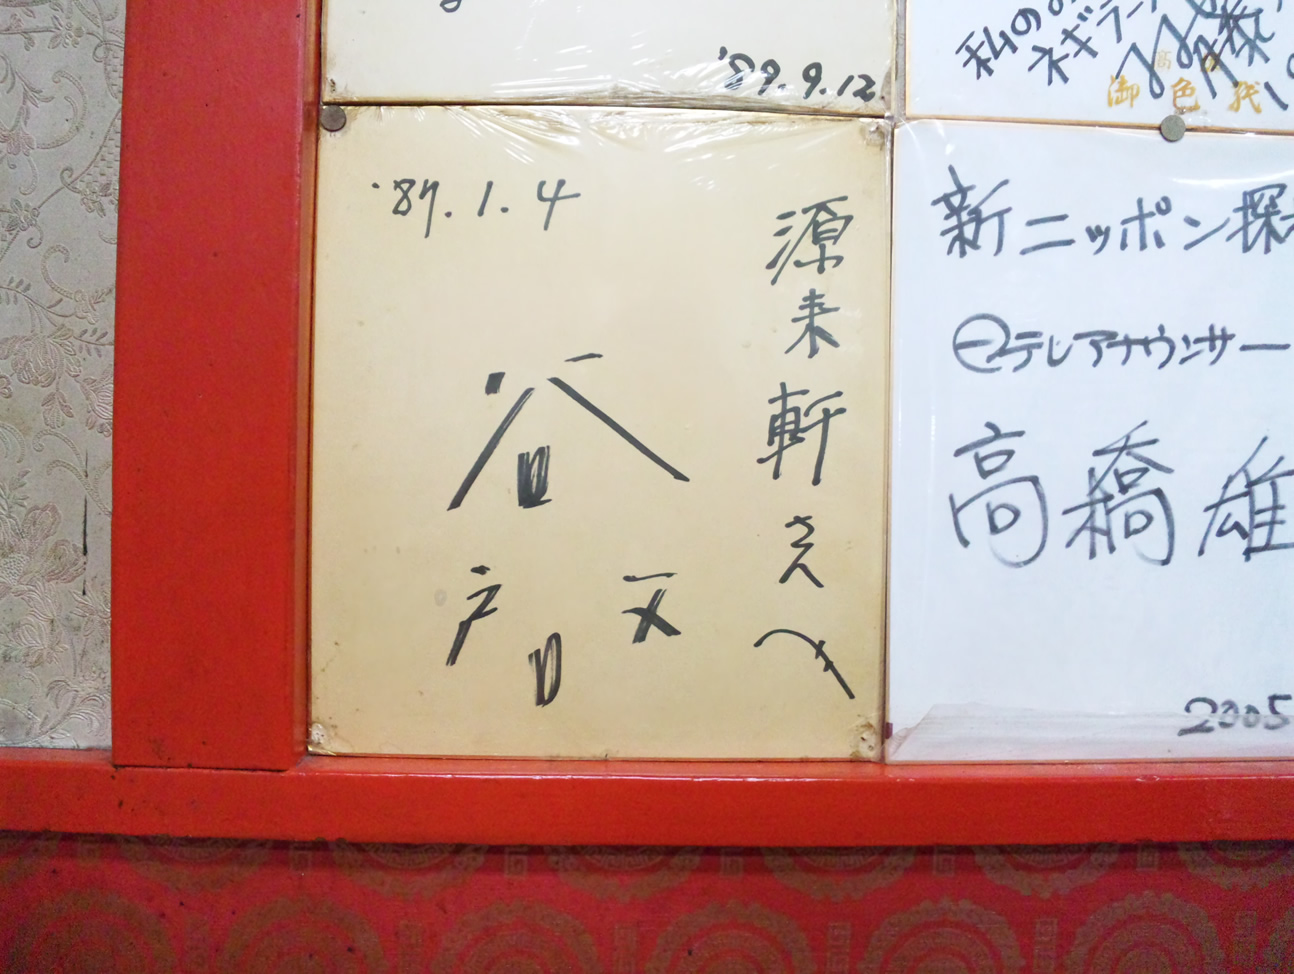 '89.9.12
私の
ネギラー
御色紙
'87.1.4
源来軒さんへ
谷
新ニッポン探
テレアナウンサー
高橋雄
2005